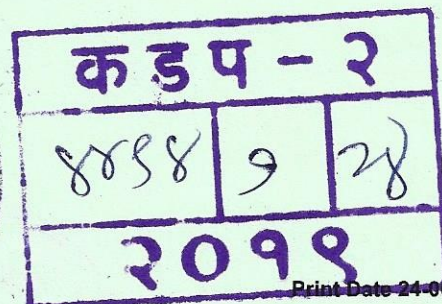 कडप - २
१ २४
२०१९
Print Date 24-0